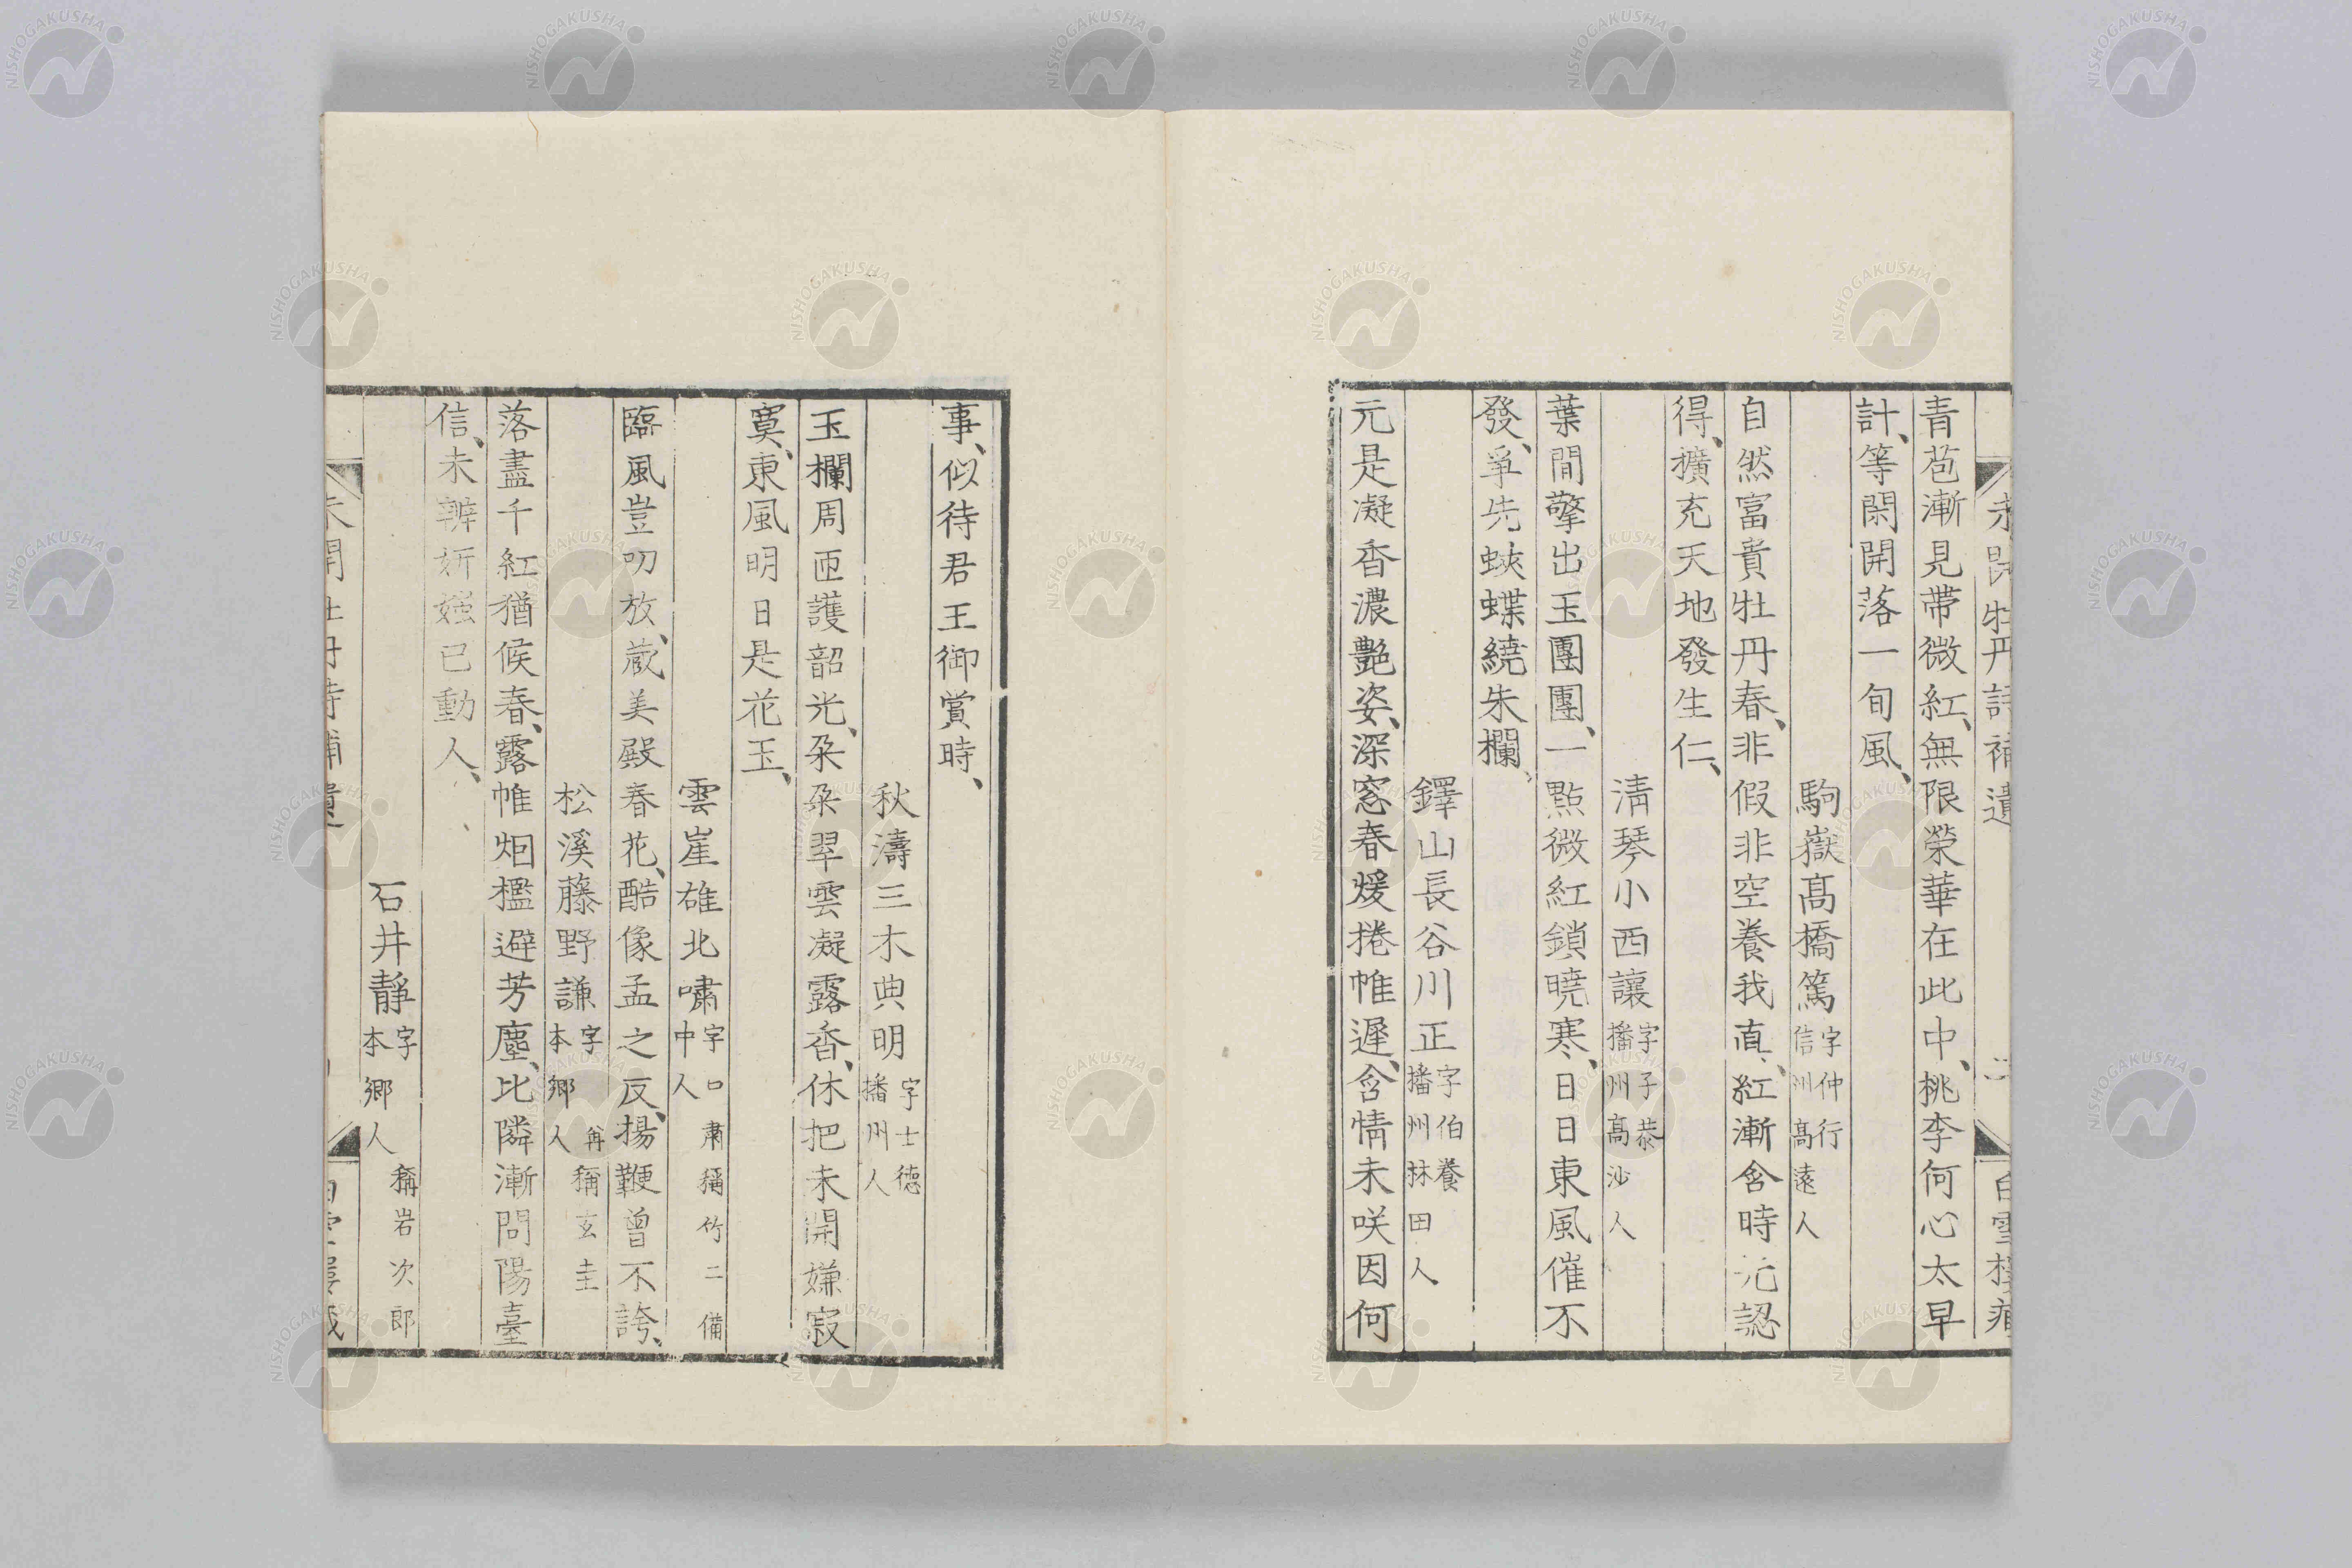 未開牡丹詩補遺
青苞漸見帶微紅、無限榮華在此中、桃李何心太早
計、等閑開落一旬風、
駒嶽髙橋篤 字仲行 信州髙遠人
自然富貴牡丹春、非假非空養我直、紅漸含時元認
得、擴充天地發生仁、
淸琴小西讓 字子恭 播州髙沙人
葉間擎出玉團團、一點微紅鎖曉寒、日日東風催不
發、爭先蛺蝶繞朱欄、
鐸山長谷川正 字伯養 播州林田人
元是凝香濃艷姿、深窓春煖捲帷遲、含情未咲因何
事、似待君王御賞時、
秋濤三木典明 字士德 播州人
玉欄周匝護韶光、朶朶翠雲凝露香、休把未開嫌寂
寞、東風明日是花王、
雲崖雄北嘯 字口肅稱竹二備 中人
臨風豈叨放、蔵美殿春花、酷像孟之反、揚鞭曾不誇、
松溪藤野謙 字 稱玄圭 本鄉人
落盡千紅猶候春、露帷烟檻避芳塵、比隣漸問陽臺
信、未辨姸媸已動人、
石井靜 字 稱岩次郎 本鄉人
未開牡丹詩補遺
NISHOGAKUSHA